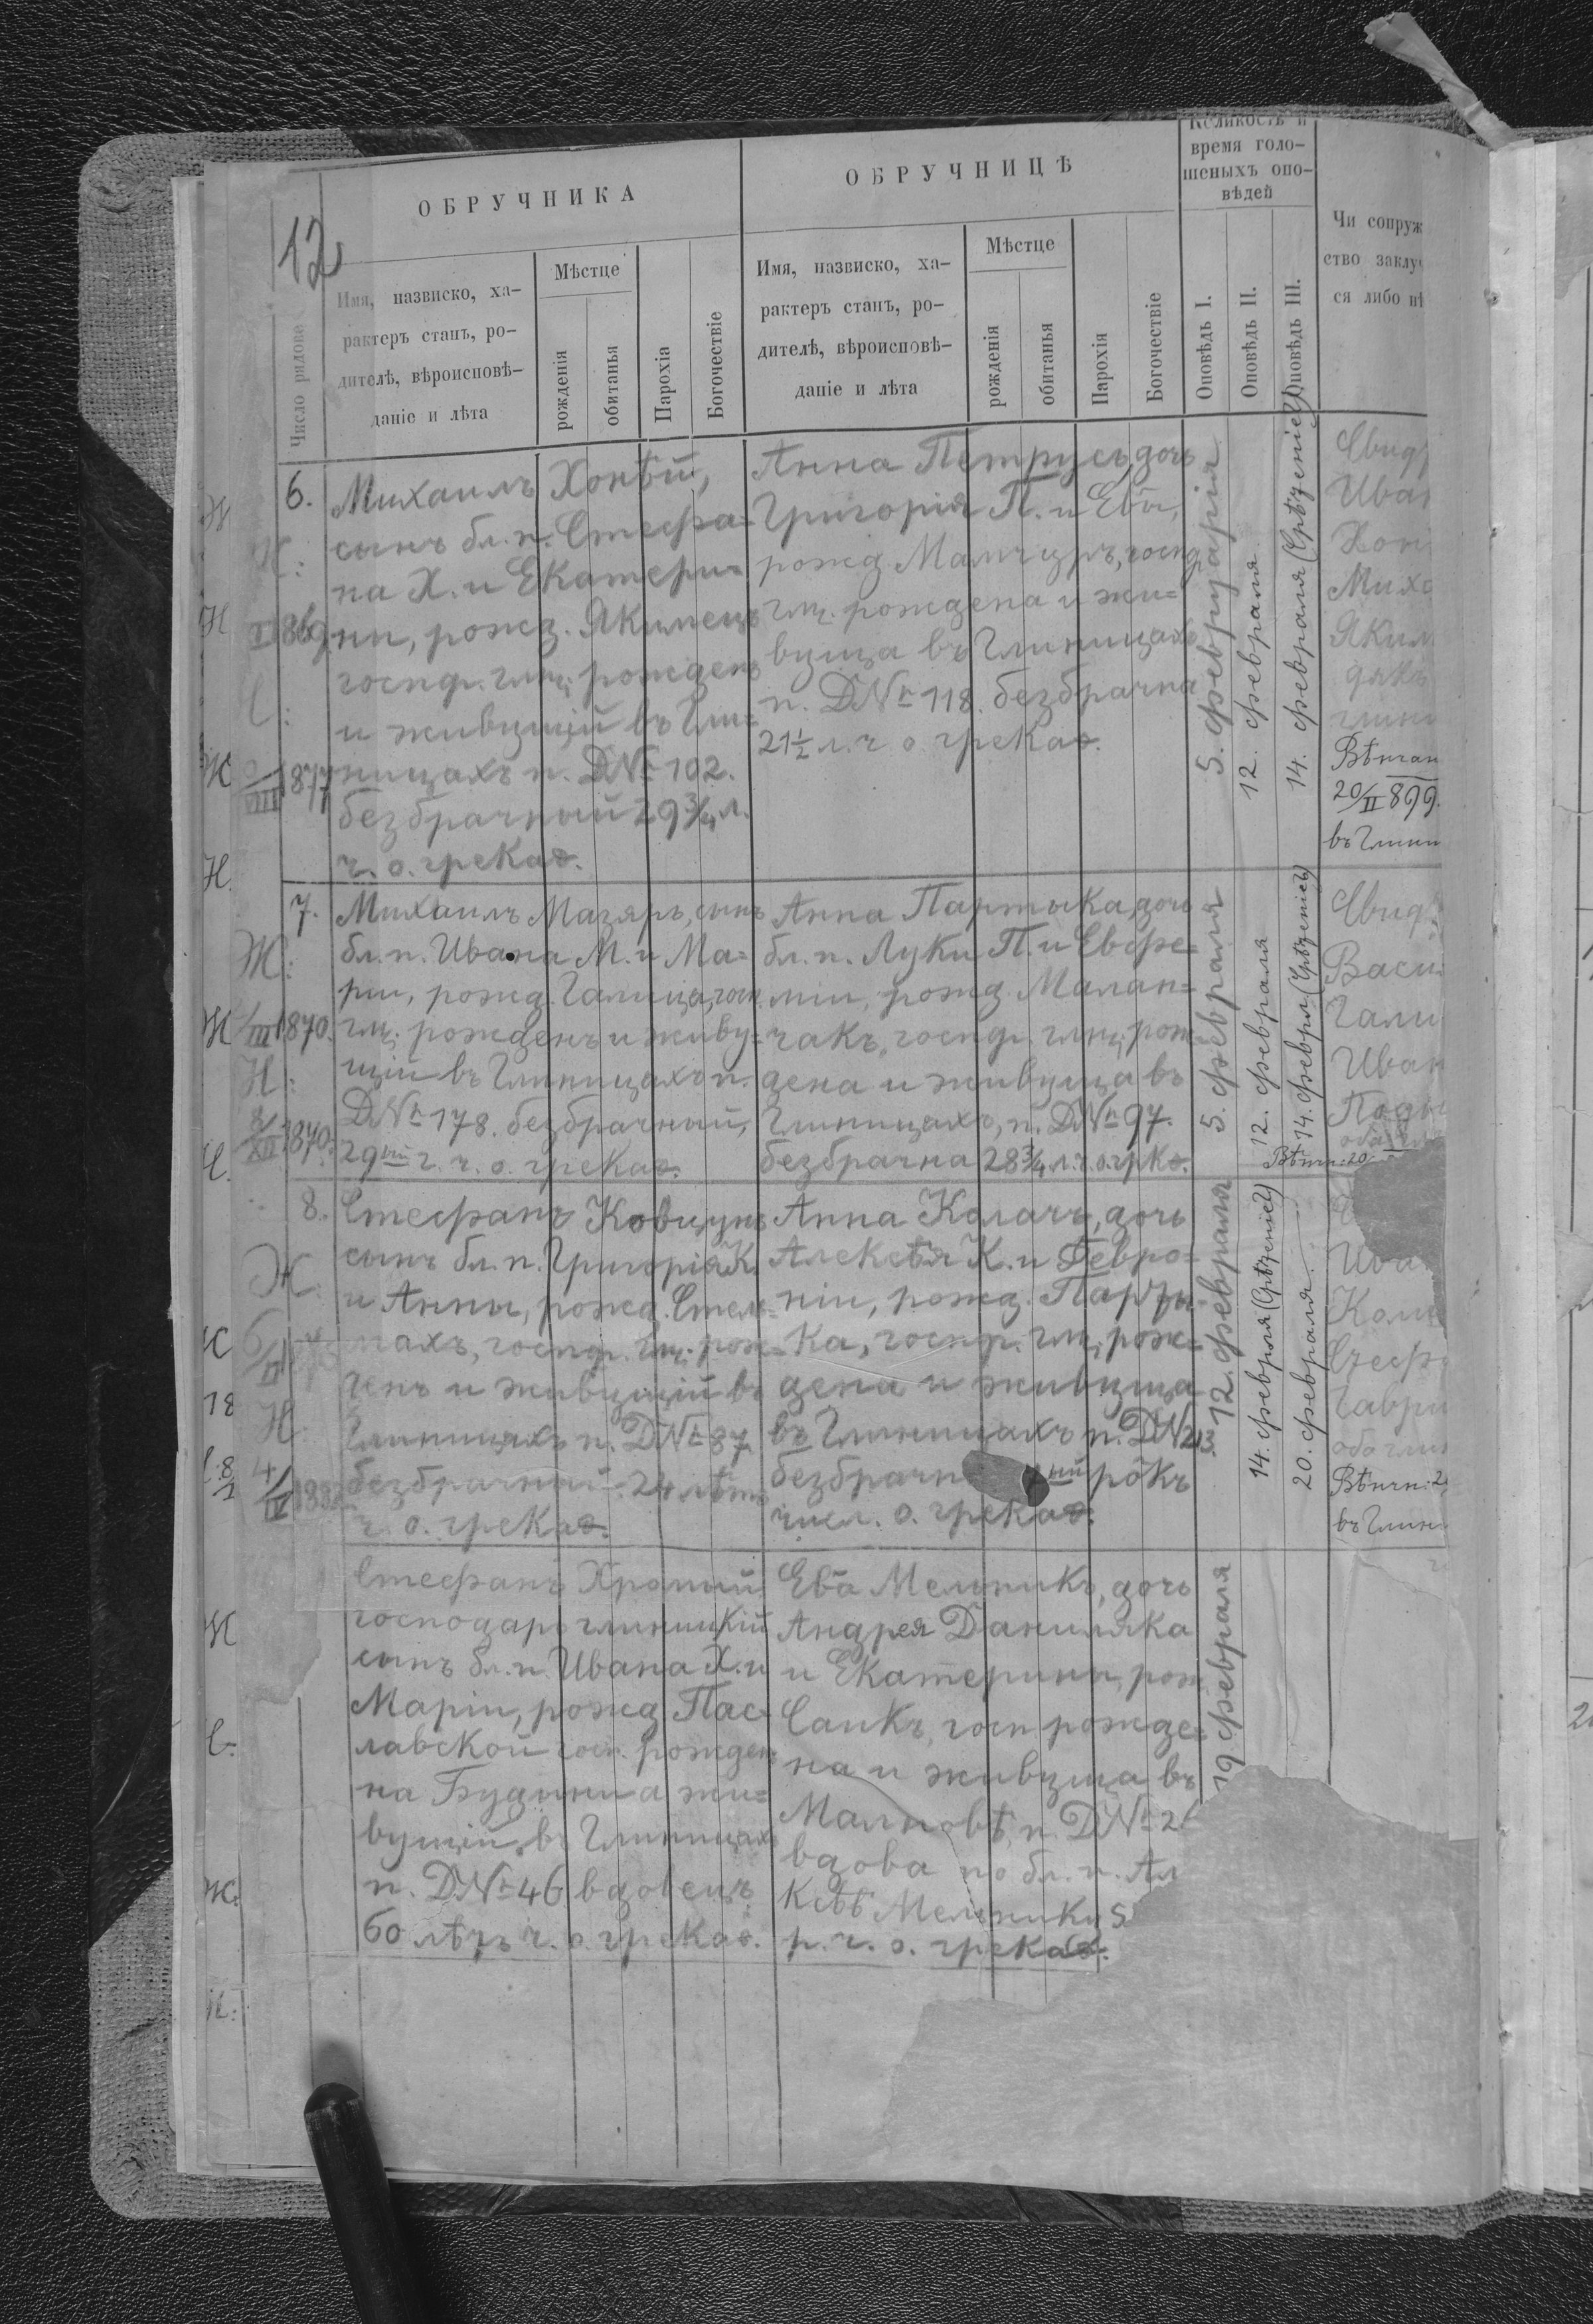 12
ОБРУЧНИКА
ОБРУЧНИЦѢ
Великость и
время голо-
шеныхъ опо-
вѣдей
Чи сопруж
ство заклю
ся либо нѣ
Число рядове
Имя, назвиско, ха-
рактеръ станъ, ро-
дителѣ, вѣроисповѣ-
даніе и лѣта
Мѣстце
рожденія
обитанья
Парохіа
Богочествіе
Имя, назвиско, ха-
рактеръ станъ, ро-
дителѣ, вѣроисповѣ-
даніе и лѣта
Мѣстце
рожденія
обитанья
Парохія
Богочествіе
Оповѣдь I.
Оповѣдь II.
Оповѣдь III.
6.
Михаилъ Хонѣй,
сынъ бл. п. Стефа-
на Х. и Екатери-
ни, рожд. Якимецъ
господ. глин. рожденъ
и живущій въ Гли-
ницахъ п. DNo 102.
безбрачный 29 3/4 л.
ч. о. грекаѳ.
Анна Петрусь, дочь
Григорія П. и Евы,
рожд. Мамчуръ, господ.
глин. рождена и жи-
вуща въ Глиницахъ
п. DNo 118. безбрачна
21 1/2 л. ч. о. грекаѳ.
5. февруарія
12. февраля
14. февраля (Срѣтеніе)
Свид
Иван
Хон
Миха
Яким
дякъ
глин
Вѣнчан
20/II 899.
въ Глини
I 869
VIII 877
7.
Михаилъ Мазяръ, сынъ
бл. п. Ивана М. и Ма-
ріи, рожд. Галица, госп.
глин. рожденъ и живу-
щій въ Глиницахъ п.
DNo 178. безбрачный,
29ый г. ч. о. грекаѳ.
Анна Партыка, дочь
бл. п. Луки П. и Евфе-
міи, рожд. Малан-
чакъ, господ. глин. рож-
дена и живуща въ
Глиницахъ, п. DNo 97.
безбрачна 28 3/4 л. ч. о. грк.
5. февраля
12. февраля
14. февраля (Срѣтеніе)
Свид.
Васи
Гали
Иван
Вѣнч: 20
III 1870.
8/XII 1870.
8.
Стефанъ Ковцунъ
сынъ бл. п. Григорія К.
и Анны, рожд. Стель-
махъ, господ. глин. рож-
денъ и живущій въ
Глиницахъ п. DNo 87.
безбрачный. 24 лѣтъ
ч. о. грекаѳ.
Анна Калачъ, дочь
Алексѣя К. и Февро-
ніи, рожд. Парты-
ка, господ. глин. рож-
дена и живуща
въ Глиницахъ п. DNo 213.
безбрачн ый рокъ
числ. о. грекаѳ.
12. февраля
14. февраля (Срѣтеніе)
20. февраля.
Ива
Стеф
Гаври
оба глин
Вѣнч: 2
въ Глин
Стефанъ Хропый
господаръ глиницкій
сынъ бл. п. Ивана Х. и
Маріи, рожд. Пас-
лавской госп. рожден
на Будини а жи-
вущій въ Глиницах
п. DNo 46 вдовецъ
60 лѣтъ ч. о. грекаѳ.
Ева Мельникъ, дочь
Андрея Даниляка
и Екатерины, рож
Саикъ, госп. рожде-
на и живуща въ
Малновѣ, п. DNo 2
вдова по бл. п. Ал
ксѣѣ Мельнику 5
р. ч. о. грекаѳ.
19 февраля